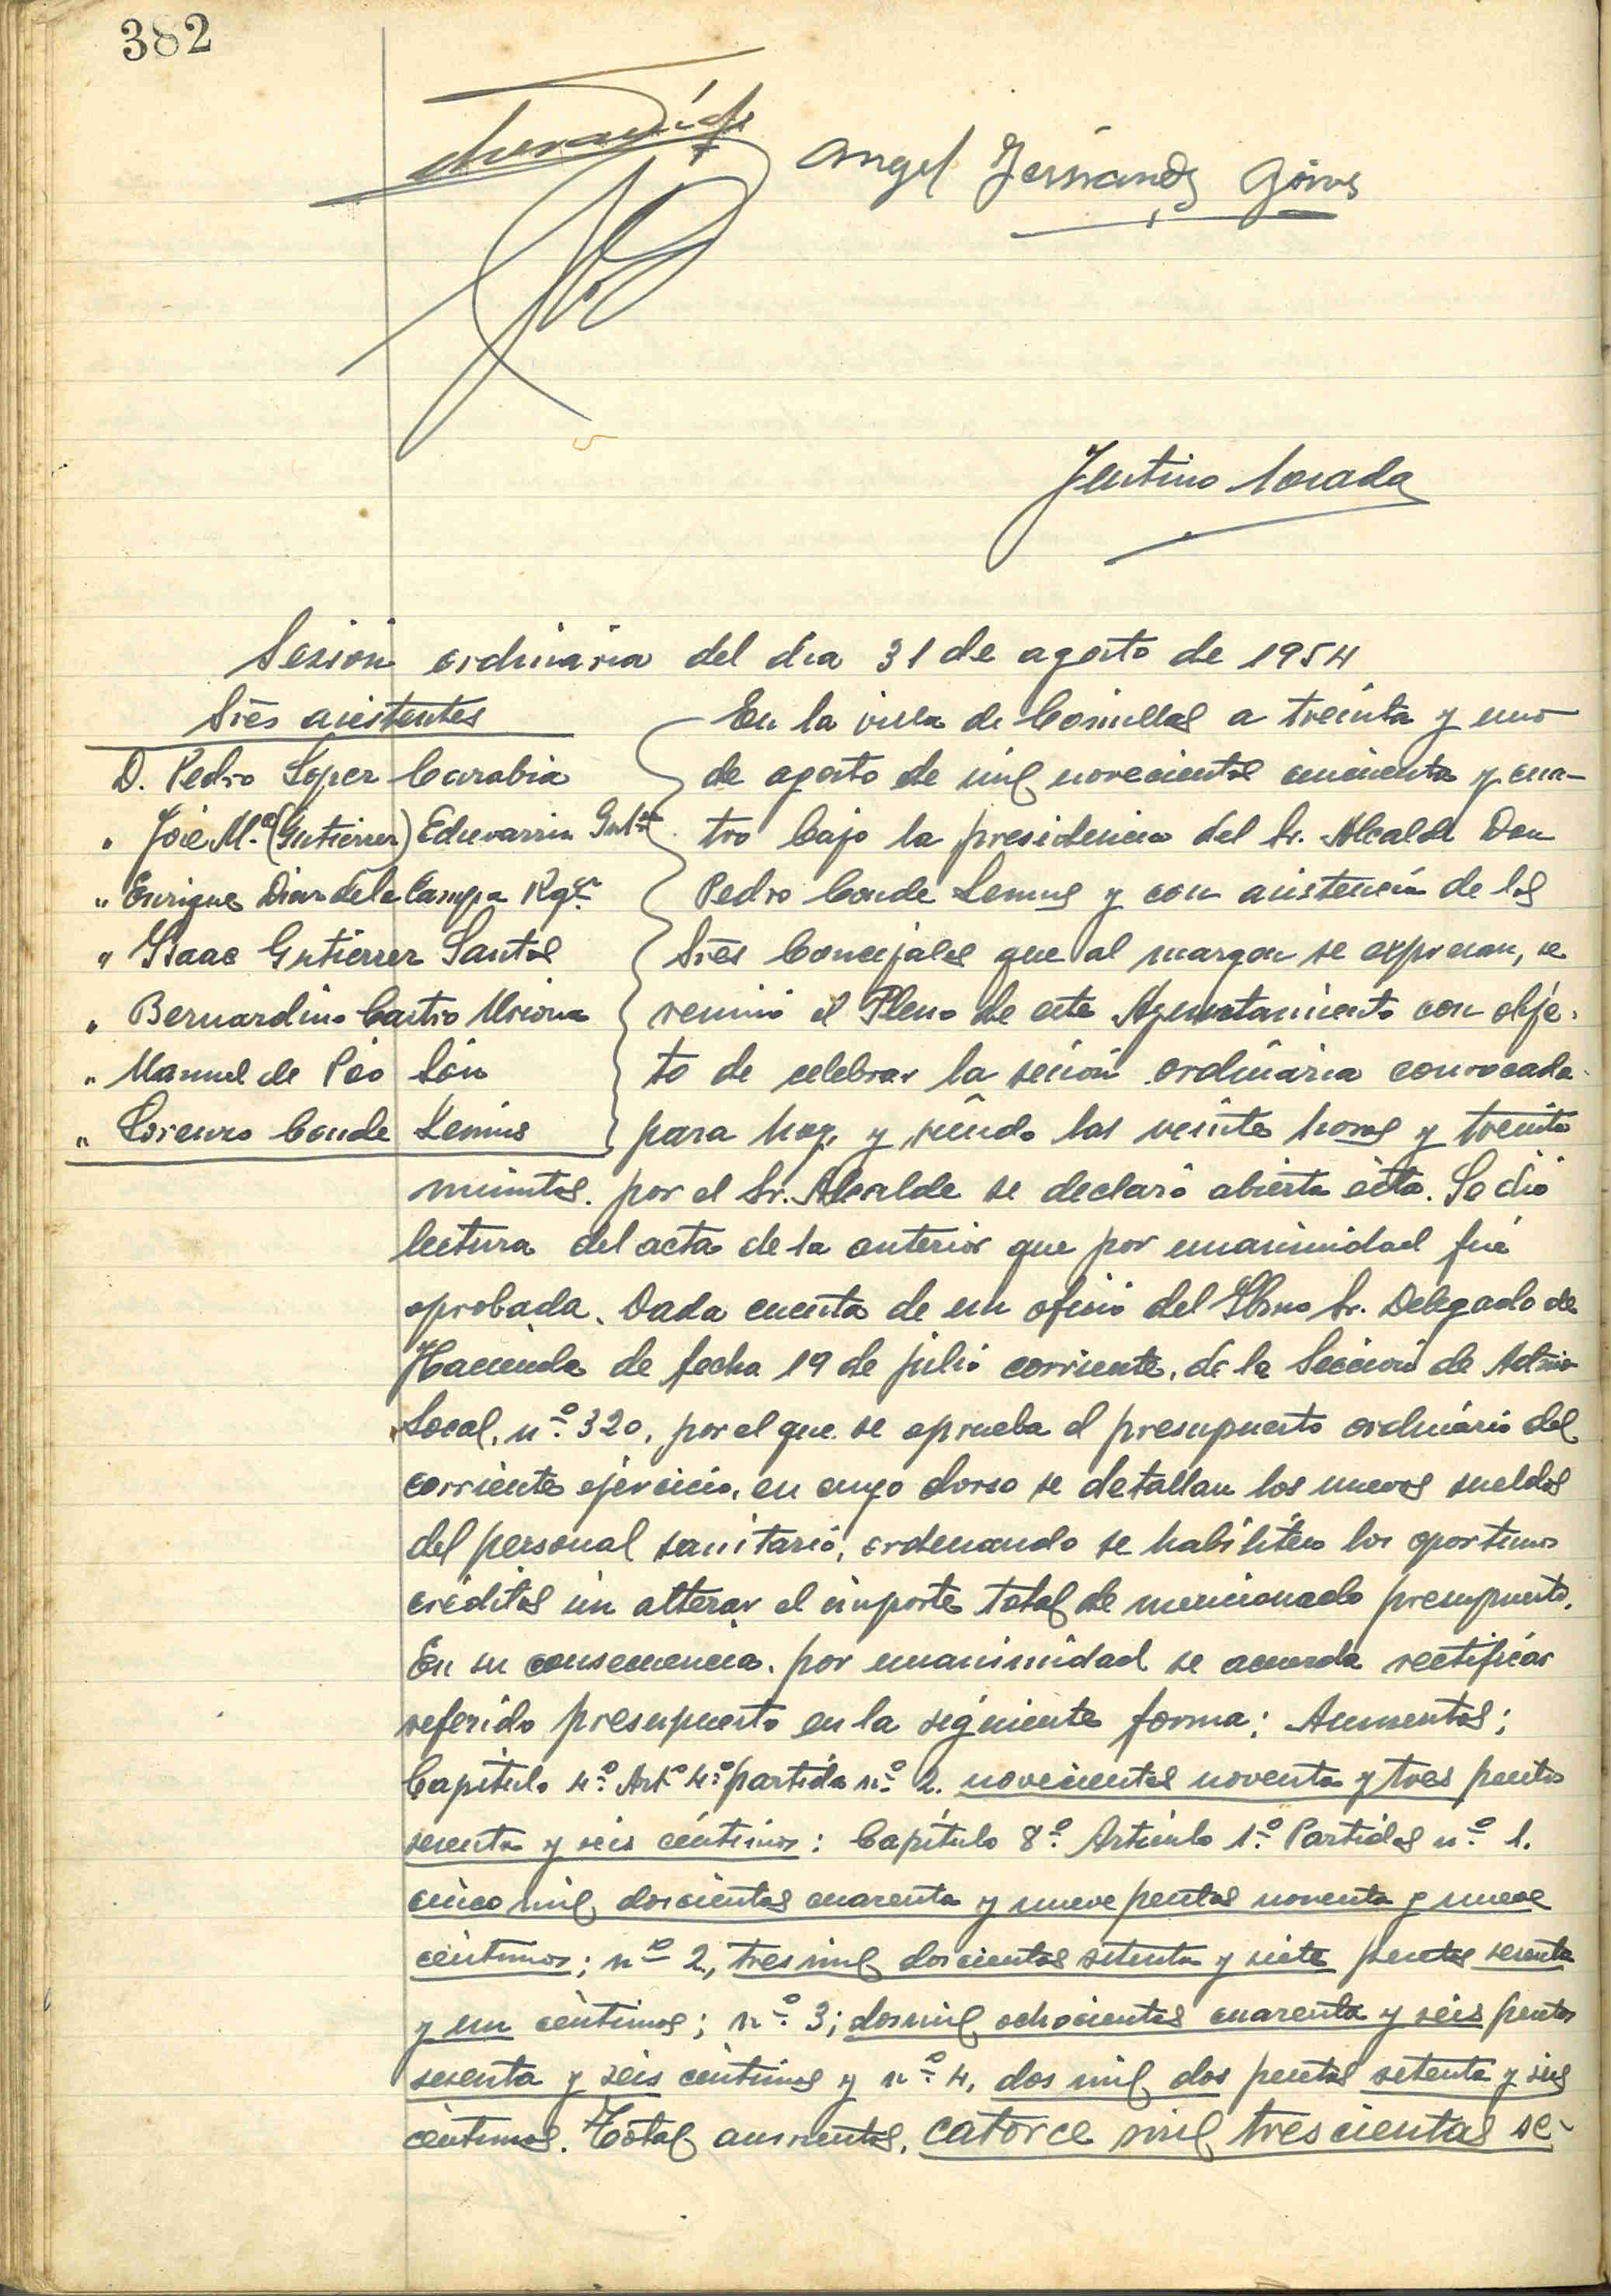 382
Angel Fernandz
Sesion ordinaria del dia 31 de agosto de 1954
Srēs asistentes
D. Pedro Soper Carabia
" José Mª (Gutierrez) Echevarria Gutz
" Enrique Diaz de la Campa Rgz
" Isaac Gutierrez Santos
" Bernardino Castro
" Manuel de Pio
" Lorenzo Conde Lemus
En la villa de Comillas a treinta y uno
de agosto de mil novecientos cincuenta y cua-
tro bajo la presidencia del Sr. Alcalde Don
Pedro Conde Lemus y con asistencia de los
Srēs Concejales que al margen se expresan, se
reunió el Pleno de este Ayuntamiento con obje-
to de celebrar la sesión ordinaria convocada
para hoy, y siendo las veinte horas y treinta
minutos. por el Sr. Alcalde se declaró abierta ésta. Se dió
lectura del acta de la anterior que por unanimidad fué
aprobada. Dada cuenta de un oficio del Ilmo Sr. Delegado de
Hacienda de fecha 19 de julio corriente, de la Sección de Admon
Local, nº 320, por el que se aprueba el presupuesto ordinário del
corriente ejercicio, en cuyo dorso se detallan los nuevos sueldos
del personal sanitario, ordenando se habiliten los oportunos
créditos sin alterar el importe total de mencionado presupuesto.
En su consecuencia. por unanimidad se acuerda rectificar
referido presupuesto en la siguiente forma: Aumentos;
Capítulo 4º Artº 4º partida nº 2. novecientas noventa y tres pesetas
sesenta y seis céntimos: Capítulo 8º Artículo 1º Partidas nº 1.
cinco mil doscientas cuarenta y nueve pesetas noventa y nueve
céntimos; nº 2, tres mil doscientas setenta y siete pesetas sesenta
y un céntimos; nº 3; dos mil ochocientas cuarenta y seis pesetas
sesenta y seis céntimos y nº 4, dos mil dos pesetas setenta y seis
céntimos. Total aumentos, catorce mil trescientas se-